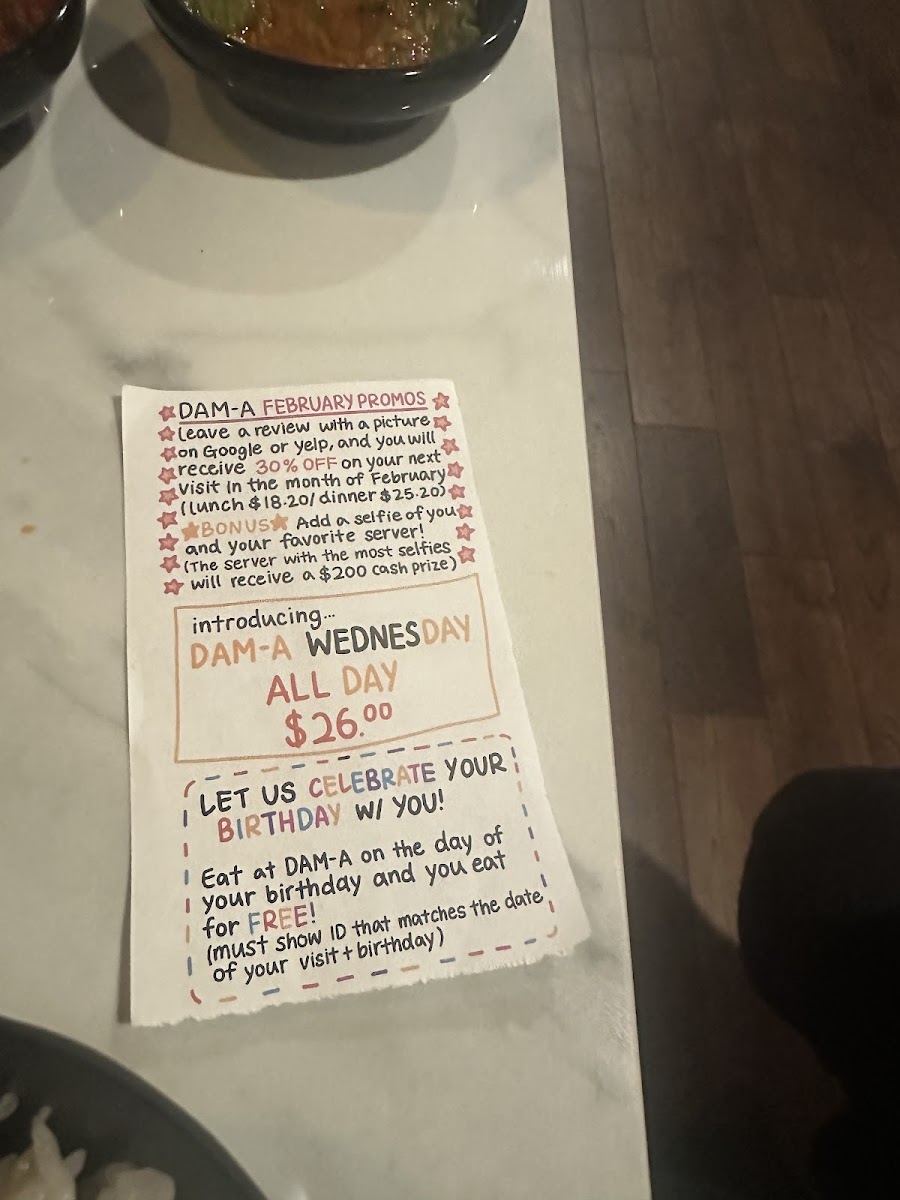 DAM-A FEBRUARY PROMOS
Leave a review with a picture
on Google or yelp, and you will
receive 30% OFF on your next
visit in the month of February
(lunch $18.20/ dinner $25.20)
BONUS Add a selfie of you
and your favorite server!
(The server with the most selfies
will receive a $200 cash prize)
introducing...
DAM-A WEDNESDAY
ALL DAY
$26.00
LET US CELEBRATE YOUR
BIRTHDAY W/ YOU!
Eat at DAM-A on the day of
your birthday and you eat
for FREE!
(must show ID that matches the date
of your visit + birthday)